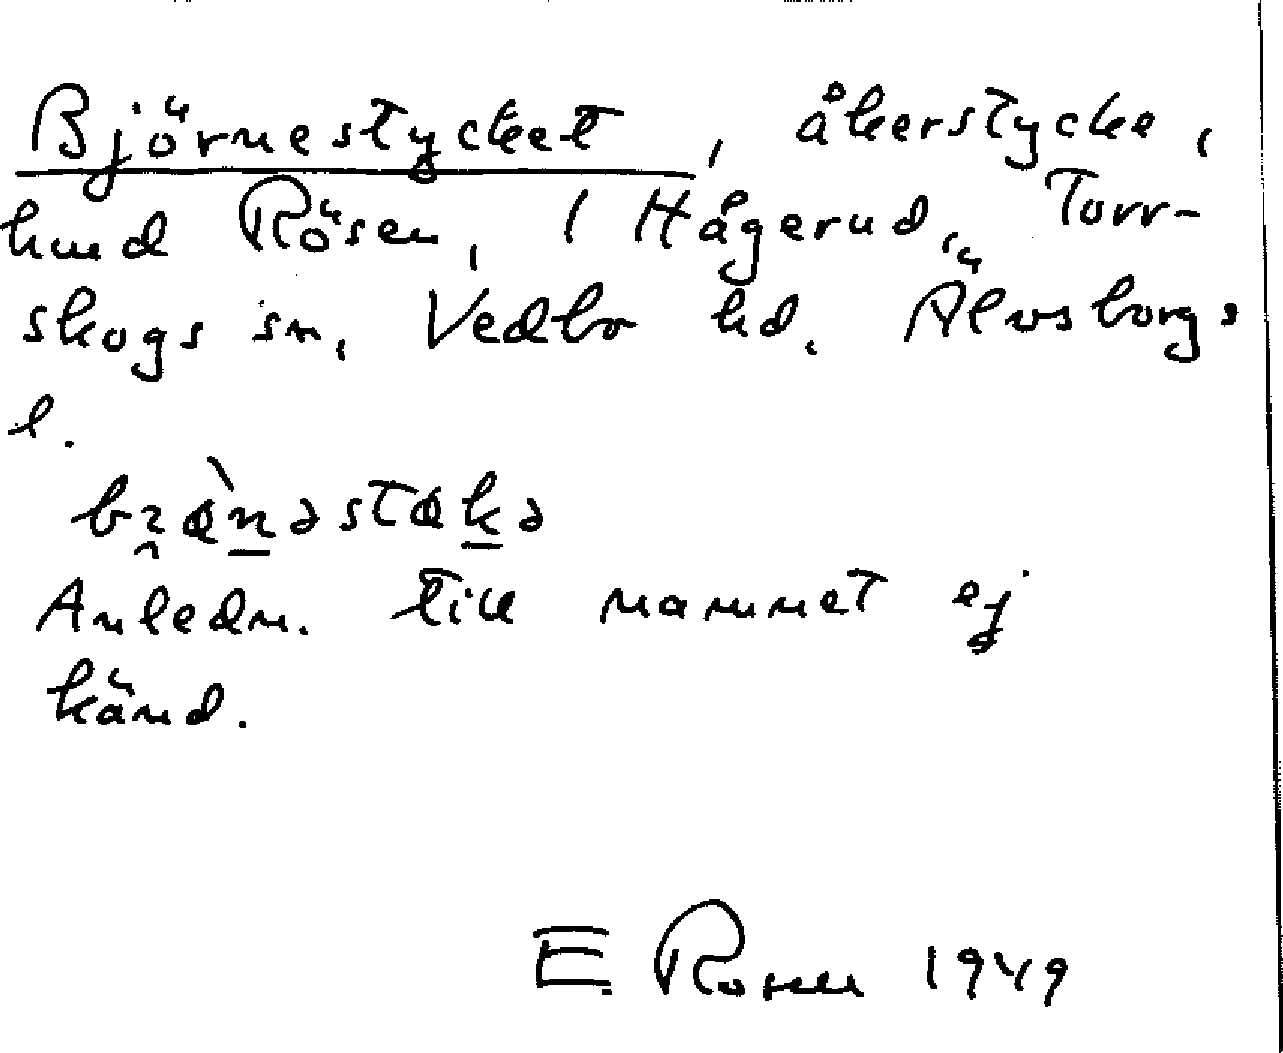 Björnestycket, åkerstycke,
hmd Rösen, 1 Hågerud, Torr-
skogs sn, Vedbo hd, Älvsborgs
l.
Anledn. till namnet ej
känd.
E Rosen 1949